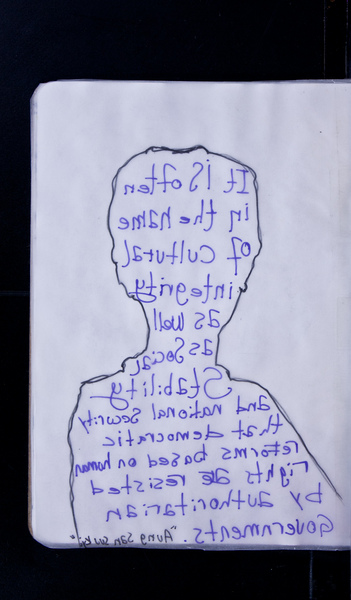 It is often
in the name
of cultural
integrity
as well
as social
Stability
and national security
that democratic
reforms based on human
rights are resisted
by authoritarian
Governments.
"Aung San Suu Kyi"